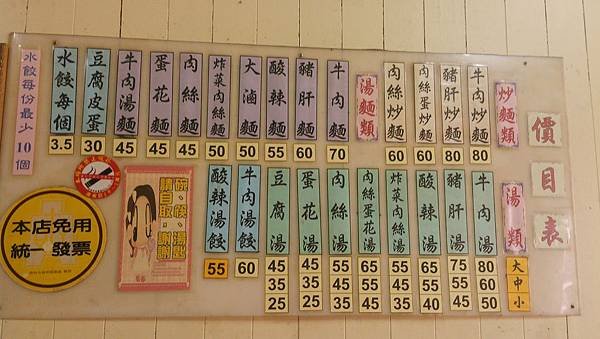 價目表
炒麵類
牛肉炒麵
80
豬肝炒麵
80
肉絲蛋炒麵
60
肉絲炒麵
60
湯麵類
牛肉麵
70
豬肝麵
60
酸辣麵
55
大滷麵
50
炸菜肉絲麵
50
肉絲麵
45
蛋花麵
45
牛肉湯麵
45
豆腐皮蛋
30
水餃每個
3.5
水餃每份最少10個
湯類
大
中
小
牛肉湯
80
60
50
豬肝湯
75
55
45
酸辣湯
65
55
40
炸菜肉絲湯
55
45
35
肉絲蛋花湯
65
55
45
肉絲湯
55
45
35
蛋花湯
45
35
25
豆腐湯
45
35
25
牛肉湯餃
60
酸辣湯餃
55
碗、筷、湯匙
請自取，謝謝
本店免用
統一發票